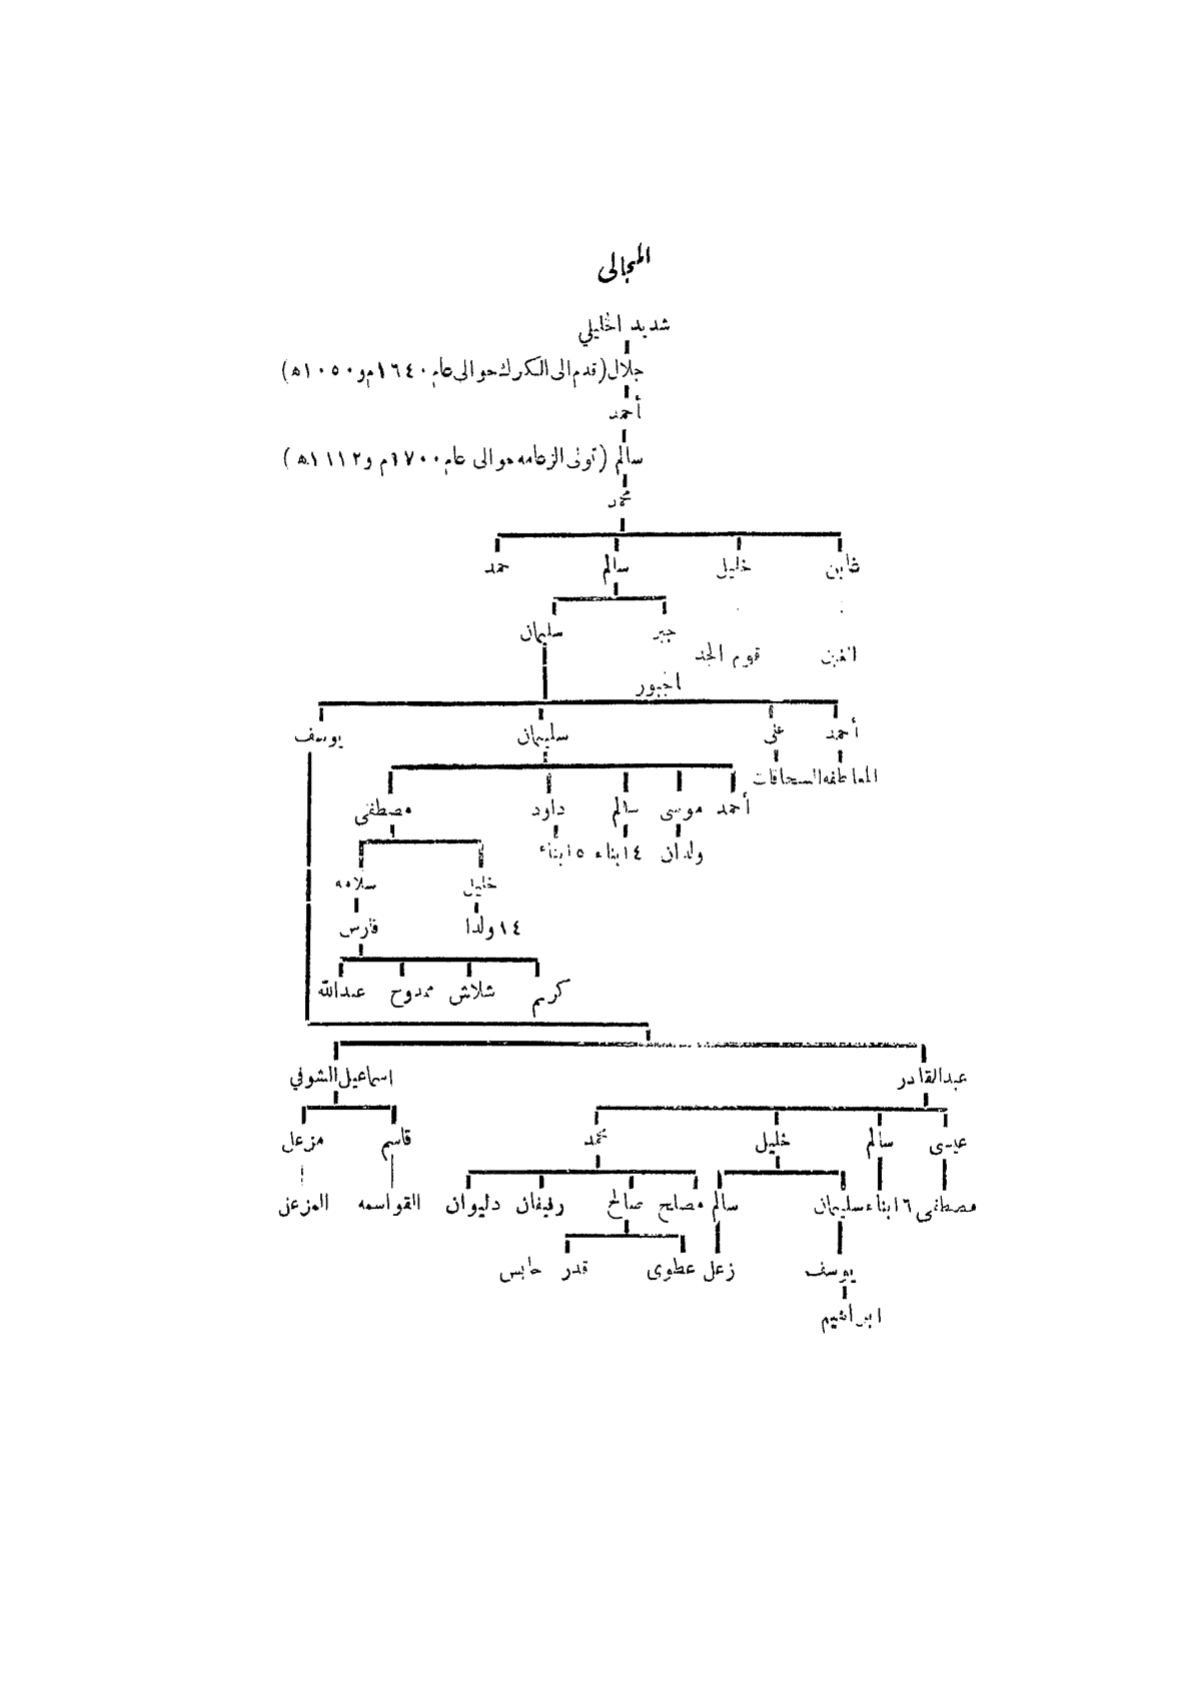 المجالى
شديد الخليلي
جلال (قدم الى الكرك حوالى عام ١٦٤٠م و ١٠٥٠ه)
أحمد
سالم (تولى الزعامه حوالى عام ١٧٠٠م و ١١١٢ه)
محمد
خليل سالم حمد
جبر سليمان
قوم الجد
الجبور
أحمد على سليمان يوسف
المعاطفه السحاقات
أحمد موسى سالم داود مصطفى
ولدان ٤ ابناء ٥ ابناء
خليل سلامه
١٤ ولدا فارس
كريم شلاش ممدوح عبدالله
عبدالقادر اسماعيل الشوفي
عيسى سالم خليل محمد قاسم مزعل
مصطفى ٦ ابناء سليمان سالم مصلح صالح رفيفان دليوان القواسمه المزعل
يوسف زعل عطوى قدر حابس
ابراهيم